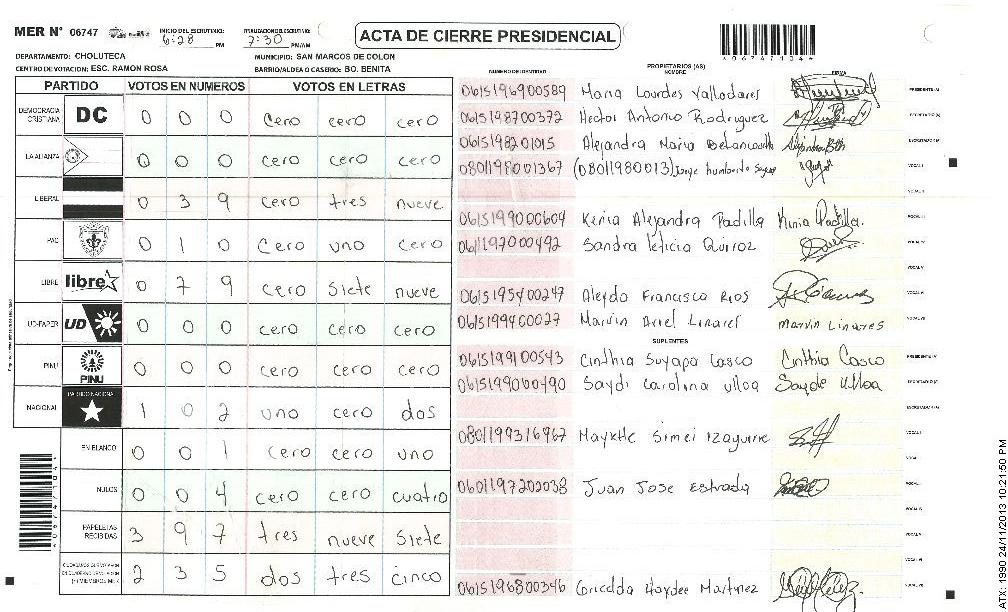 MER N° 06747
INICIO DEL ESCRUTINIO: 6:28 PM
FINALIZACION DEL ESCRUTINIO: 7:30 PM/AM
ACTA DE CIERRE PRESIDENCIAL
*06747104*
DEPARTAMENTO: CHOLUTECA
MUNICIPIO: SAN MARCOS DE COLON
CENTRO DE VOTACION: ESC. RAMON ROSA
BARRIO/ALDEA O CASERIO: BO. BENITA
PARTIDO VOTOS EN NUMEROS VOTOS EN LETRAS
DEMOCRACIA CRISTIANA DC 0 0 0 cero cero cero
LA ALIANZA 0 0 0 cero cero cero
LIBERAL 0 3 9 cero tres nueve
PAC 0 1 0 cero uno cero
LIBRE libre 0 7 9 cero siete nueve
UD-FAPER UD 0 0 0 cero cero cero
PINU PINU 0 0 0 cero cero cero
NACIONAL PARTIDO NACIONAL 1 0 2 uno cero dos
EN BLANCO 0 0 1 cero cero uno
NULOS 0 0 4 cero cero cuatro
PAPELETAS RECIBIDAS 3 9 7 tres nueve siete
2 3 5 dos tres cinco
*06747104*
NUMERO DE IDENTIDAD
PROPIETARIOS (AS)
NOMBRE
FIRMA
0615196900589 Maria Lourdes Valladares PRESIDENTE (A)
0615198700372 Hector Antonio Rodriguez SECRETARIO (A)
0615198201015 Alejandra Maria Betancourth ESCRUTADOR (A)
0801198001367 (08011980013) Jorge humberto VOCAL I
VOCAL II
0615199000604 Kenia Alejandra Padilla Kenia Padilla. VOCAL III
0611197000492 Sandra leticia Quiroz VOCAL IV
VOCAL V
0615195400247 Aleyda Francisca Rios VOCAL VI
0615199400027 Marvin Ariel Linares Marvin Linares VOCAL VII
SUPLENTES
0615199100543 Cinthia Suyapa Casco Cinthia Casco PRESIDENTE (A)
0615199000490 Saydi Carolina ulloa Sayde Ulloa SECRETARIO (A)
ESCRUTADOR (A)
0801199316967 Simei Izaguirre VOCAL I
0601197202038 Juan Jose Estrada
0615196800346 Griselda Haydee Martinez
ATX: 1990 24/11/2013 10:21:50 PM